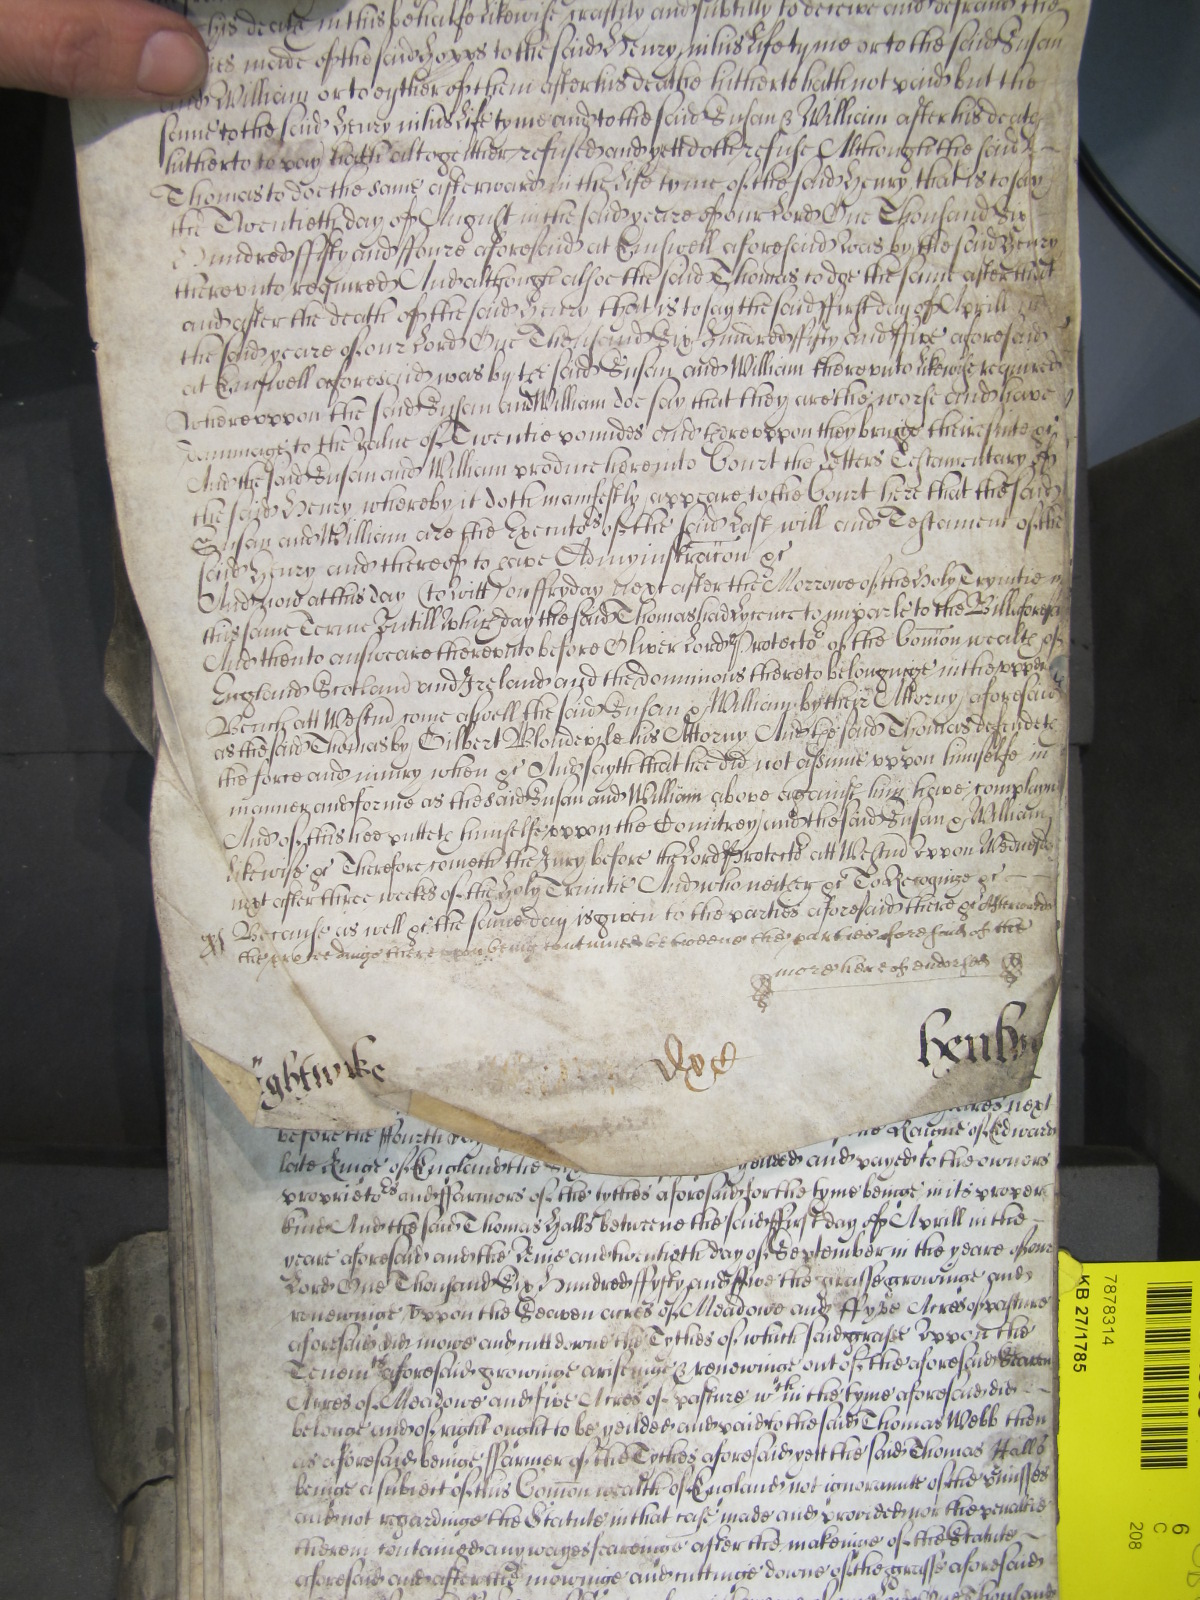 his death in this behalfe likewise craftily and subtilly to deceive and defraud the
made of the said Hopps to the said Henry in his life tyme or to the said Susan
and William or to eyther of them after his deathe hitherto hath not paid but the
same to the said Henry in his life tyme and to the said Susan & William after his death
hitherto to pay hath altogether refused and yett doth refuse Although the said
Thomas to doe the same afterward in the life tyme of the said Henry that is to say
the Twentieth day of August in the said yeare of our Lord One Thousand Six
Hundred ffifty and ffoure aforesaid at Emswell aforesaid was by the said Henry
therevnto required And although alsoe the said Thomas to doe the same after that
and after the death of the said Henry that is to say the said ffirst day of Aprill in
the said yeare of our Lord One Thousand Six Hundred ffifty and ffive aforesaid
at Emswell aforesaid was by the said Susan and William therevnto likewise required
Wherevppon the said Susan and William doe say that they are the worse and have
dammage to the value of Twentie poundes and therevppon they bringe their suite &c
And the said Susan and William produce here into Court the Letters Testamentary of
the said Henry whereby it doth manifestly appeare to the Court here that the said
Susan and William are the Executors of the said Last will and Testament of the
said Henry and thereof to have Admynistracon &c
And now at this day (to witt) on ffryday next after the Morrowe of the Holy Trynitie in
this same Terme Vntill which day the said Thomas had lycence to imparle to the Bill aforesaid
And then to answeare therevnto before Oliver Lord Protector of the Comon wealth of
England Scotland and Ireland and the dominions thereto belonginge in the vpper
Bench att Westmr come aswell the said Susan & William by their Attorny aforesaid
as the said Thomas by Gilbert Blondevile his Attorny And the said Thomas defendeth
the force and iniury when &c And sayth that hee did not assume vppon himselfe in
manner and forme as the said Susan and William above against him have complayned
And of this hee putteth himselfe vppon the Countrey and the said Susan & William
likewise &c Therefore cometh the Jury before the Lord Protector att Westmr vppon Wednesday
next after three weekes of the Holy Trinitie And who neither &c To Recognize &c
Because as well &c the same day is given to the parties aforesaid there &c Afterwards
the proceedings therevpon being continued betweene the parties aforesaid of the
more here of endorsed
ghtwike
henly
yeares next
before the ffourth
the Raigne of Edward
late Kinge of England the
yeilded and payed to the owners
proprietors and ffarmors of the tythes aforesaid for the tyme beinge in its proper
kind And the said Thomas Halls betweene the said ffirst day of Aprill in the
yeare aforesaid and the Nine and twentieth day of September in the yeare of our
Lord One Thousand Six Hundred ffyfty and ffive the grasse growinge and
renewinge vppon the Seaven acres of Meadowe and ffyve Acres of pasture
aforesaid did mowe and cutt downe the Tythes of which said grasse vppon the
Tenemts aforesaid growinge ariseinge & renewinge out of the aforesaid Seaven
Acres of Meadowe and five Acres of pasture wth in the tyme aforesaid did
belonge and of right ought to be yeilded and paid to the said Thomas Webb then
as aforesaid beinge ffarmer of the Tythes aforesaid yett the said Thomas Halls
beinge a subiect of this Comon wealth of England not ignorante of the premisses
and not regardinge the Statute in that case made and provided nor the penaltie
therein contained any wayes feareinge after the makeinge of the Statute
aforesaid and after the mowinge and cuttinge downe of the grasse aforesaid
One Thousand
KB 27/1785
7878314
6
C
208